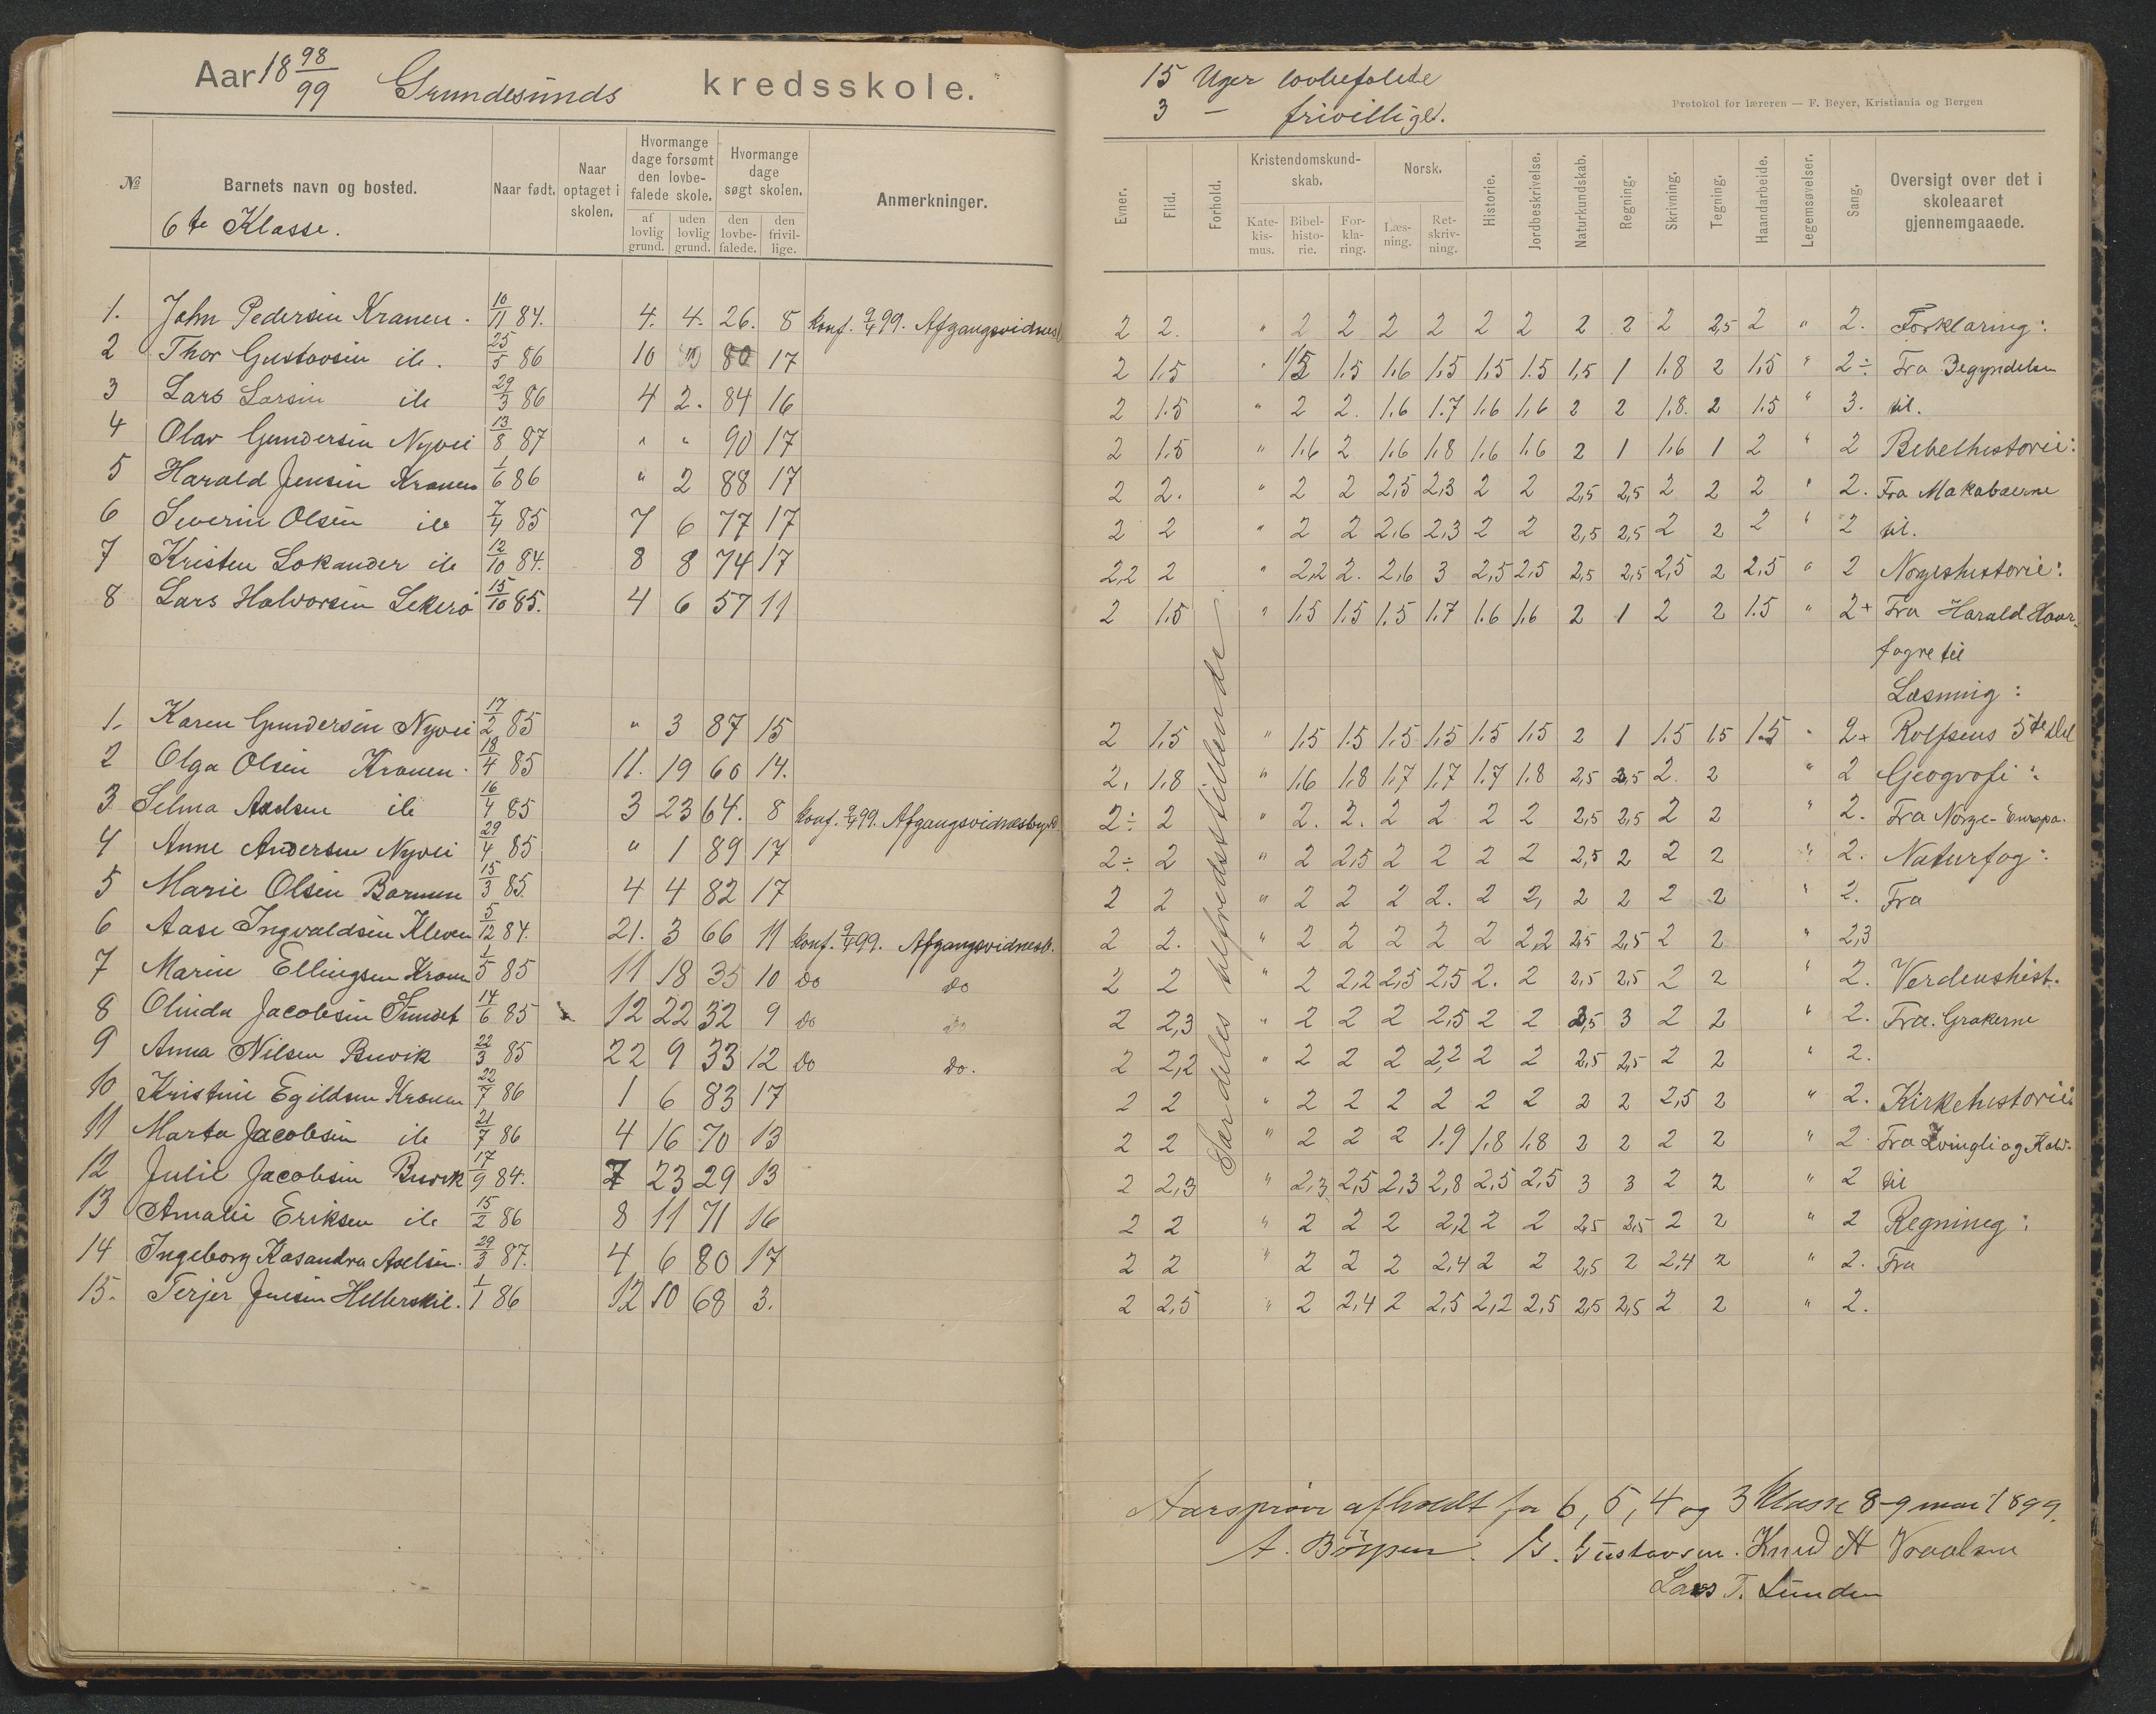 Aar 18 98/99 Grundesunds kredsskole.
№ Barnets navn og bosted. Naar født. Naar optaget i skolen. Hvormange dage forsømt den lovbefalede skole. af lovlig grund. uden lovlig grund. Hvormange dage søgt skolen. den lovbefalede. den frivillige. Anmerkninger.
6te Klasse.
1. John Pedersen Kranen. 10/11 84. 4. 4. 26. 8 Konf. 9/4 99. Afgangsvidnesb
2 Thor Gustavsen ib. 25/5 86 10 80 17
3 Lars Larsen ib 29/3 86 4 2. 84 16
4 Olav Gundersen Nyvei 13/8 87 " " 90 17
5 Harald Jensen Kranen 1/6 86 " 2 88 17
6 Severin Olsen ib 7/4 85 7 6 77 17
7 Kristen Lokander ib 12/10 84. 8 8 74 17
8 Lars Halvorsen Lekerø 15/10 85. 4 6 57 11
1. Karen Gundersen Nyvei 17/2 85 " 3 87 15
2 Olga Olsen Kranen. 18/4 85 11. 19 60 14.
3 Selma Axelsen ib 16/4 85 3 23 64. 8 Konf. 9/4 99. Afgangsvidnesbyrd
4 Anne Andersen Nyvei 29/4 85 " 1 89 17
5 Marie Olsen Barmen 15/3 85. 4 4 82 17
6 Aase Ingvaldsen Kleven 5/12 84. 21. 3 66 11 Konf. 9/4 99. Afgangsvidnesb.
7 Marie Ellingsen Kranen 1/5 85 11 18 35 10 do do
8 Olinda Jacobsen Sundet 14/6 85 12 22 32 9 do do
9 Anna Nilsen Buvik 22/3 85 22 9 33 12 do do.
10 Kristine Egildsen Kranen 22/7 86 1 6 83 17
11 Marta Jacobsen ib 21/7 86 4 16 70 13
12 Julie Jacobsen Buvik 17/9 84. 7 23 29 13
13 Amalie Eriksen ib 15/2 86 8 11 71 16
14 Ingeborg Kasandra Axelsen. 29/3 87. 4 6 80 17
15. Terjer Jensen Hellerskil. 1/1 86 12 10 68 3.
15 Uger lovbefalede
3 — frivillige.
Protokol for læreren — F. Beyer, Kristiania og Bergen
Evner. Flid. Forhold. Kristendomskundskab. Katekismus. Bibelhistorie. Forklaring. Norsk. Læsning. Retskrivning. Historie. Jordbeskrivelse. Naturkundskab. Regning. Skrivning. Tegning. Haandarbeide. Legemsøvelser. Sang. Oversigt over det i skoleaaret gjennemgaaede.
2 2. " 2 2 2 2 2 2 2 2 2 2,5 2 " 2. Forklaring:
2 1.5 " 1,5 1.5 1.6 1.5 1.5 1.5 1,5 1 1.8 2 1,5 " 2÷ Fra Begyndelsen
2 1.5 " 2 2. 1.6 1.7 1.6 1,6 2 2 1,8. 2 1.5 " 3. til.
2 1.5 " 1.6 2 1.6 1.8 1.6 1.6 2 1 1.6 1 2 " 2 Bibelhistorie:
2 2. " 2 2 2,5 2,3 2 2 2,5 2,5 2 2 2 " 2. Fra Makabæerne
2 2 " 2 2 2,6 2,3 2 2 2,5 2,5 2 2 2 " 2 til.
2,2 2 " 2,2 2. 2,6 3 2,5 2,5 2,5 2,5 2,5 2 2,5 " 2 Norgeshistorie:
2 1.5 " 1.5 1.5 1.5 1.7 1.6 1.6 2 1 2 2 1.5 " 2+ Fra Harald Haar-
fagre til
Læsning:
2 1,5 " 1.5 1.5 1.5 1.5 1.5 1.5 2 1 1.5 1.5 1.5 " 2+ Rolfsens 5te Del
2. 1.8 " 1.6 1.8 1.7 1.7 1.7 1.8 2,5 2,5 2. 2 " 2 Geografi:
2÷ 2 " 2. 2. 2 2 2 2 2,5 2,5 2 2 " 2. Fra Norge - Europa.
2÷ 2 " 2 2,5 2 2 2 2 2,5 2 2 2 " 2. Naturfag:
2 2 " 2 2 2 2. 2 2, 2 2 2 2 " 2. Fra
2 2. " 2 2 2 2 2 2,2 2,5 2,5 2 2 " 2,3
2 2 " 2 2,2 2,5 2,5 2. 2 2,5 2,5 2 2 " 2. Verdenshist.
2 2,3 " 2 2 2 2,5 2 2 2,5 3 2 2 " 2. Fra Grækerne
2 2,2 " 2 2 2 2,2 2 2 2,5 2,5 2 2 " 2.
2 2 " 2 2 2 2 2 2 2 2 2,5 2 " 2. Kirkehistorie:
2 2 " 2 2 2 1.9 1.8 1.8 2 2 2 2 " 2 Fra Zvingli og Kalv.
2 2,3 " 2,3 2,5 2,3 2,8 2,5 2,5 3 3 2 2 " 2 til
2 2 " 2 2 2 2,2 2 2 2,5 2,5 2 2 " 2 Regning:
2 2 " 2 2 2 2,4 2 2 2,5 2 2,4 2 " 2. Fra
2 2,5 " 2 2,4 2 2,5 2,2 2,5 2,5 2,5 2 2 " 2.
Særdeles tilfredsstillende
Aarsprøve afholdt for 6, 5, 4 og 3 Klasse 8-9 mai 1899.
A. G. Gustavsen. Knud A Vraalsen
Lars T. Lunden